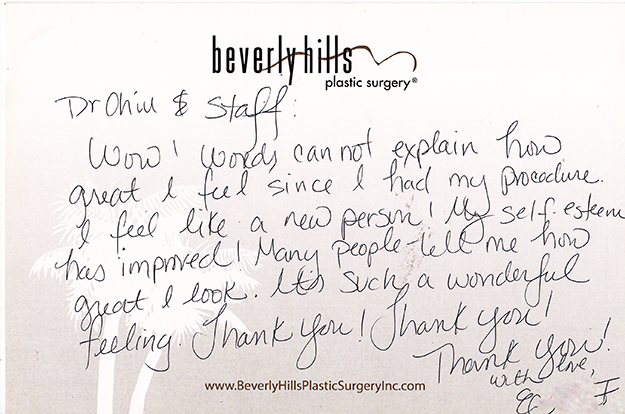 beverly hills
plastic surgery®
Dr Ohiu & Staff:
Wow! Words can not explain how
great I feel since I had my procedure.
I feel like a new person! My self-esteem
has improved! Many people tell me how
great I look. It's such a wonderful
feeling. Thank you! Thank you!
Thank you!
with love,
www.BeverlyHillsPlasticSurgeryInc.com